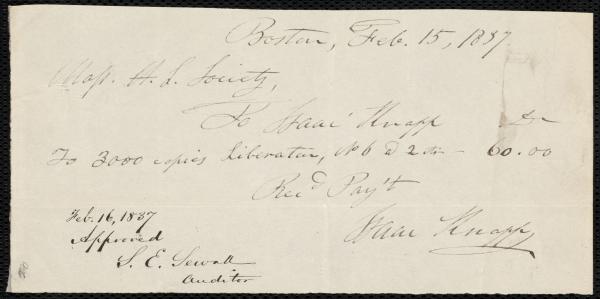 Boston, Feb. 15, 1837
Mass. A. S. Society,
To Isaac Knapp Dr
To 3000 copies Liberator, No 6 @ 2 cts - 60.00
Rec'd Pay't
Isaac Knapp
Feb. 16, 1837
Approved
S. E. Sewall
Auditor